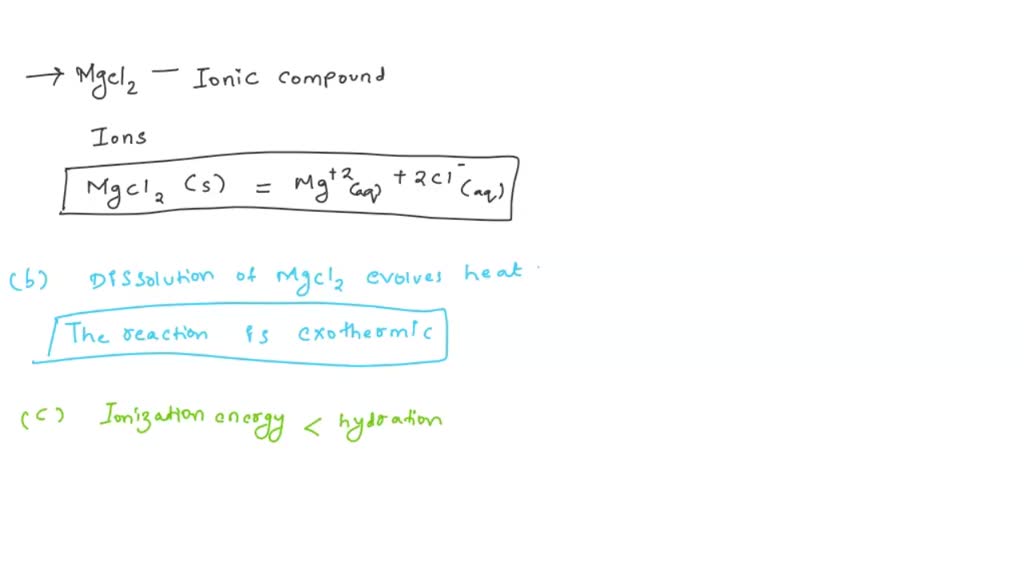 → MgCl₂ — Ionic compound
Ions
MgCl₂ (s) = Mg⁺²(aq) + 2Cl⁻(aq)
(b) Dissolution of MgCl₂ evolves heat
The reaction is exothermic
(c) Ionization energy < hydration